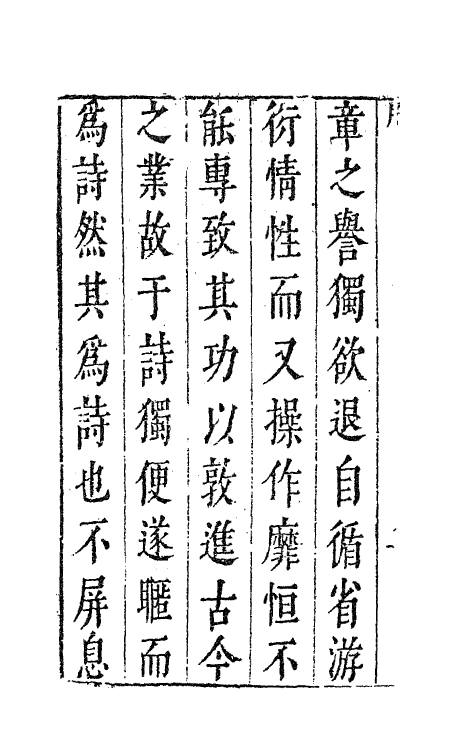 章之譽獨欲退自循省游
衍情性而又操作靡恒不
能專致其功以敦進古今
之業故于詩獨便遂暱而
爲詩然其爲詩也不屏息